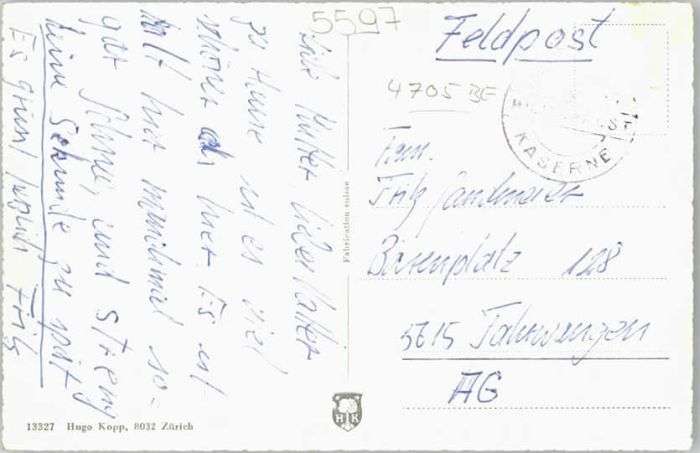 5597
Feldpost
4705 BE
KASERNE
Liebe Mutter lieber Vater
zu Hause ist es viel
schöner als hier. Es ist
kalt hier manchmal so-
gar Schnee, und streng
keine Sekunde zu spät
Es grüsst Fritz
Fam.
Fritz
Bärenplatz 128
5615 Fahrwangen
AG
Fabrication suisse
HK
13327 Hugo Kopp, 8032 Zürich